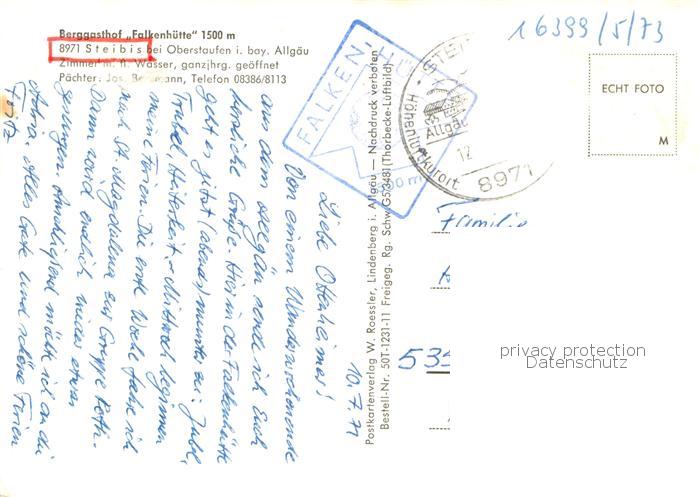 Berggasthof „Falkenhütte" 1500 m
8971 Steibis bei Oberstaufen i. bay. Allgäu
Zimmer m. fl. Wasser, ganzjhrg. geöffnet
Pächter: Jos. Telefon 08386/8113
16399/5/73
FALKEN HÜTTE
1500 m
STEI
Allgäu
12
Höhenluftkurort
8971
ECHT FOTO
M
10.7.71
Liebe Ottenheimer!
Von einem Wanderwochenende
aus dem Allgäu sende ich Euch
herzliche Grüße. Hier in der Falkenhütte
geht es jetzt (abends) munter zu: Jubel,
Trubel, Heiterkeit. Mittwoch beginnen
meine Ferien. Die erste Woche fahre ich
nach St. Magdalena zur Gruppe
Dann wird endlich wieder etwas
gesungen. Anschließend möchte ich an die
Adria. Alles Gute und schöne Ferien
Postkartenverlag W. Roessler, Lindenberg i. Allgäu — Nachdruck verboten
Bestell-Nr. 50T-1231-11 Freigeg. Rg. Schw. G5/348 (Thorbecke-Luftbild)
Familie
53
privacy protection
Datenschutz